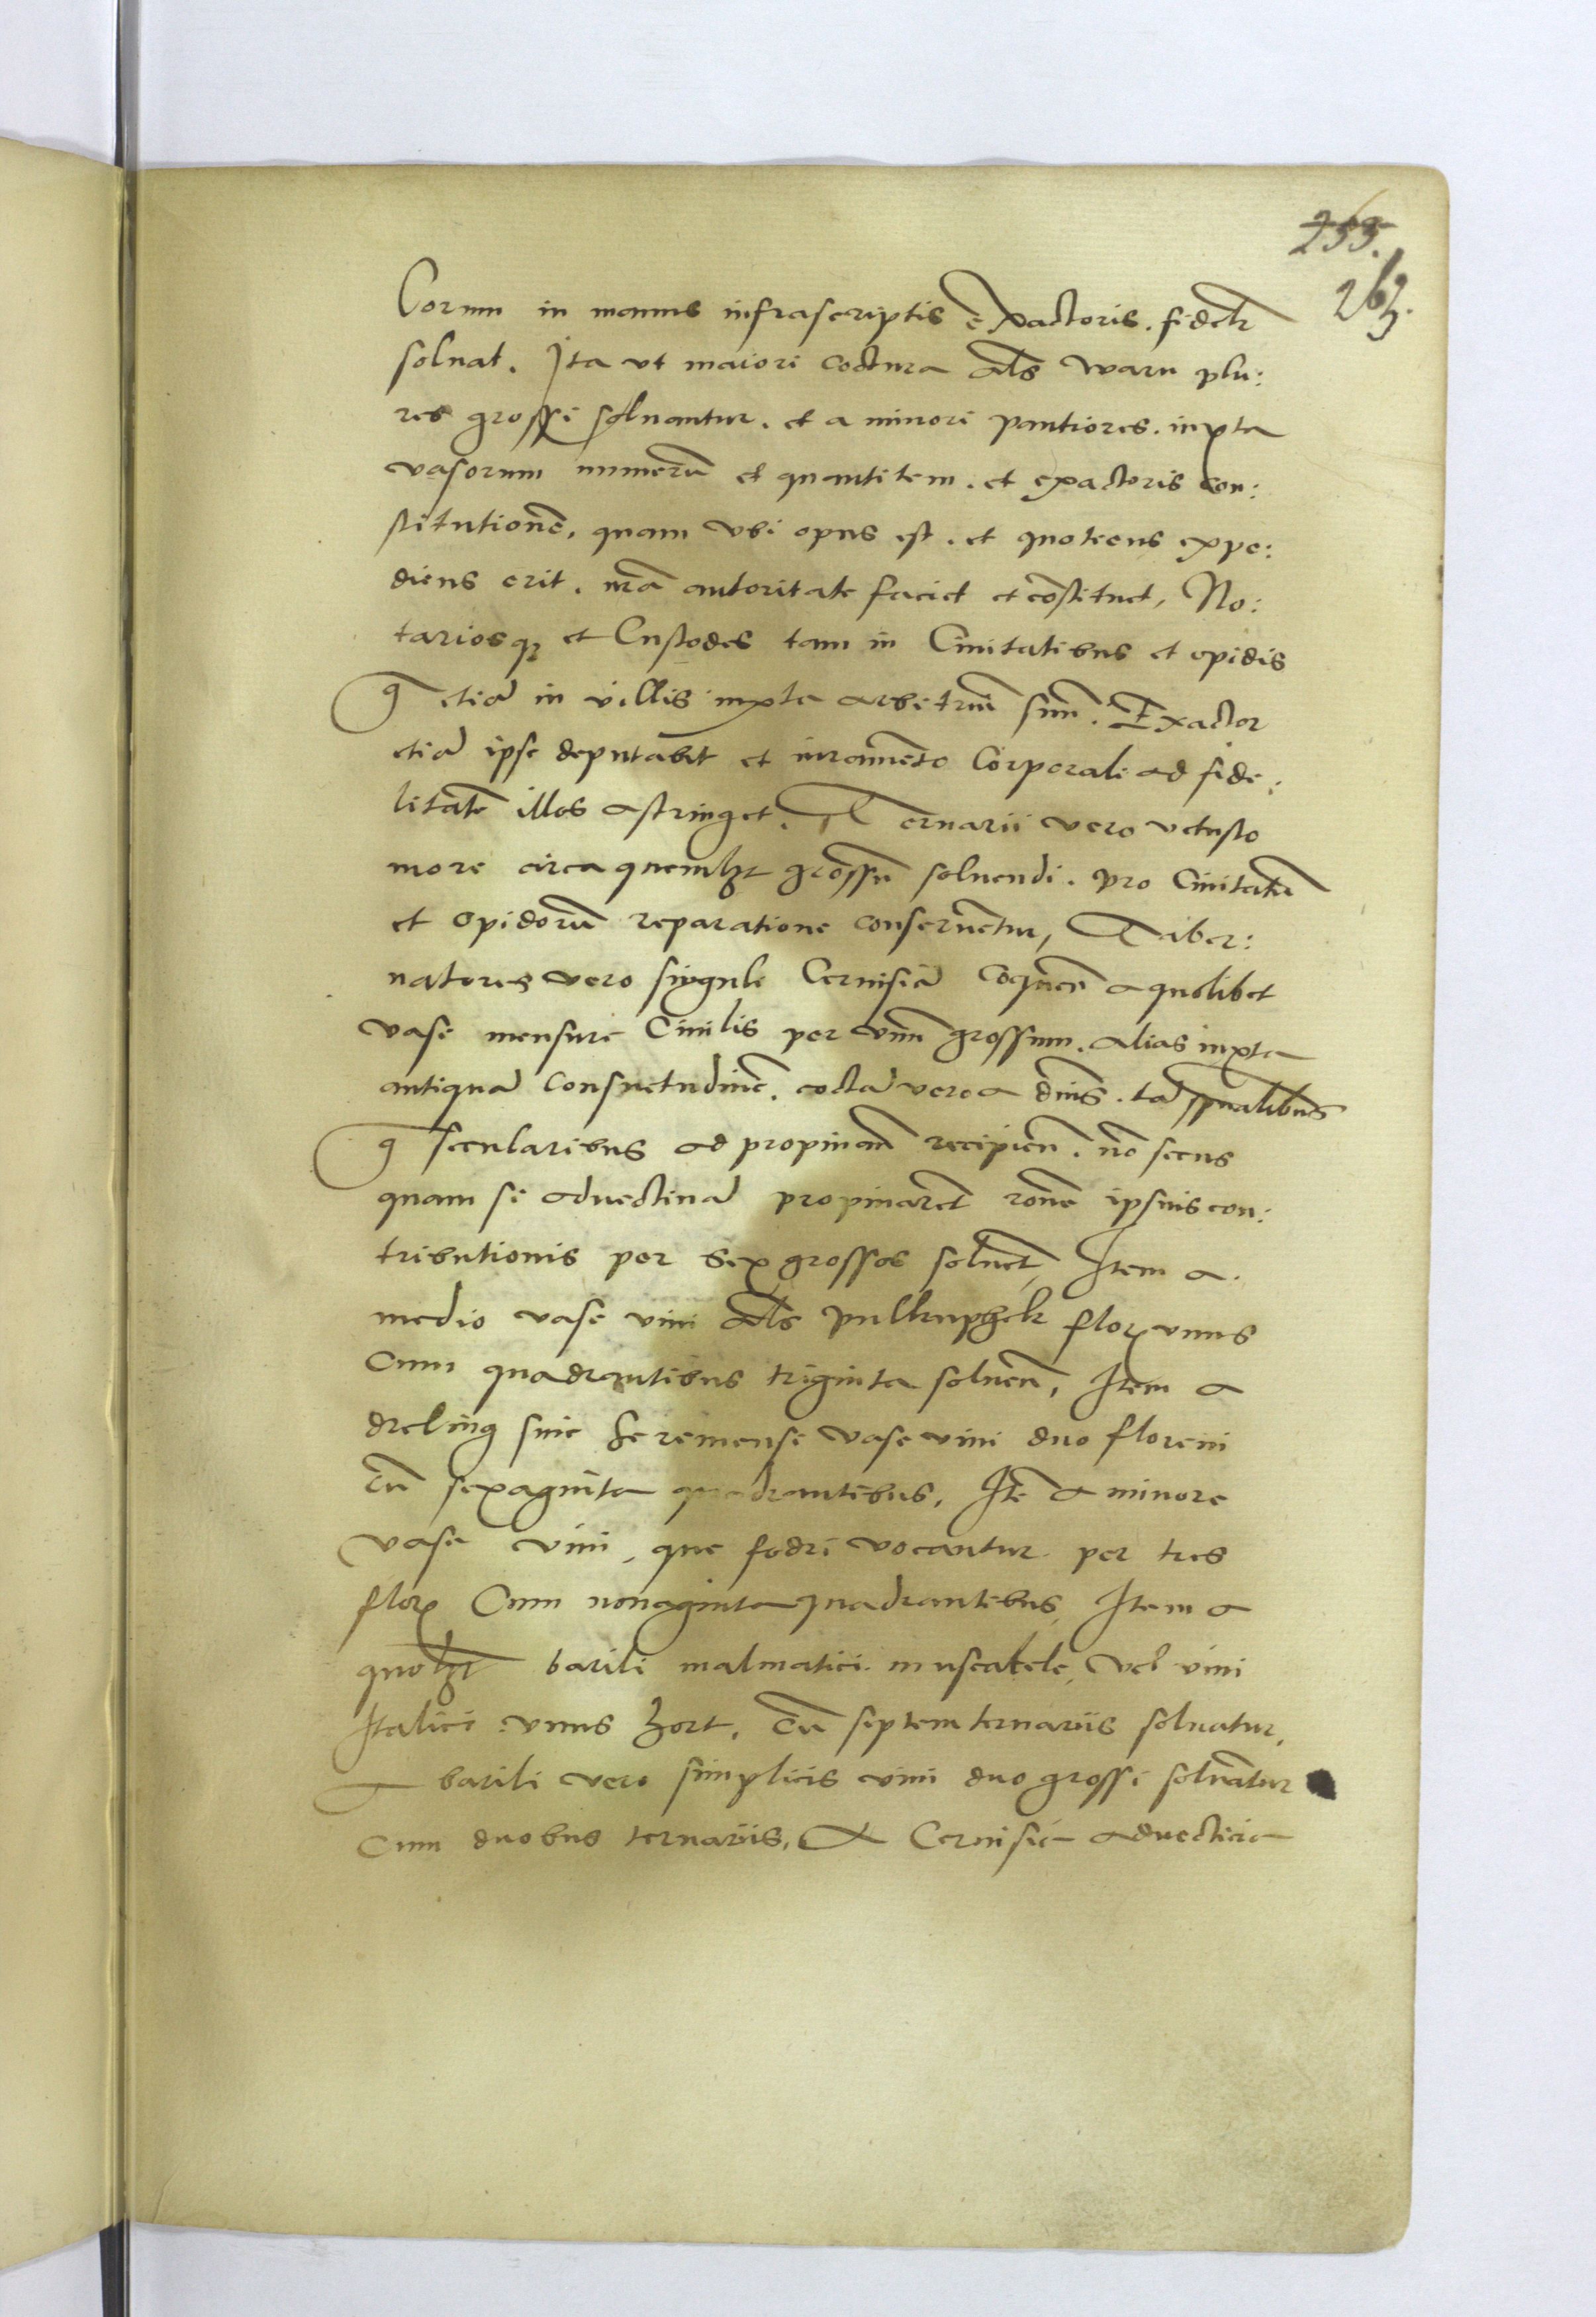 255.
263.
Corum in manus infrascriptis Exactoris. fidelr
soluat. Ita vt maiori coctura als waru plu:
res grossi soluantur. et a minori pautiores. iuxta
vasorum numerū et quantitem. et exactoris con:
stitutionē, quam vbi opus est. et quotiens expe:
diens erit. nr̄a autoritate faciet et cōstituet, No:
tariosq₃ et Custodes tam in Ciuitatibus et opidis
q̄ etiā in villis iuxta arbitriū suū. Exactor
etiā ipse deputabit et iuramēto Corporali ad fide:
litatē illos astringet. Ternarii vero vetusto
more circa quemlꝫt grossū soluendi. pro Ciuitatū
et opidorū reparatione conseruētur, Taber:
natores vero singuli Ceruisiā coquēn a quolibet
vase mensure Ciuilis per vnū grossum. alias iuxta
antiquā consuetudinē. coctā vero a dn̄is. tā spualibus
q̄ secularibus ad propinam recipien̄. nō secus
quam si aduectinā propinarēt rōne ipsius con:
tributionis per sex grossos soluēt, Item a
medio vase vini als pulkuphek floꝝ vnus
Cum quadrantibus triginta soluen̄, Item a
dreling siue Heremense vase vini duo floreni
cū sexaginta quadrantibus, Itē a minore
vase vini, que fedri vocantur per tres
floꝝ Cum nonaginta quadrantibus, Item a
quolꝫt barili malmatici muscatele, vel vini
Italici vnus hort, cū septem ternariis soluatur,
A barili vero simplicis vini duo grossi soluātur
Cum duobus ternariis, A Ceruisia aduecticia